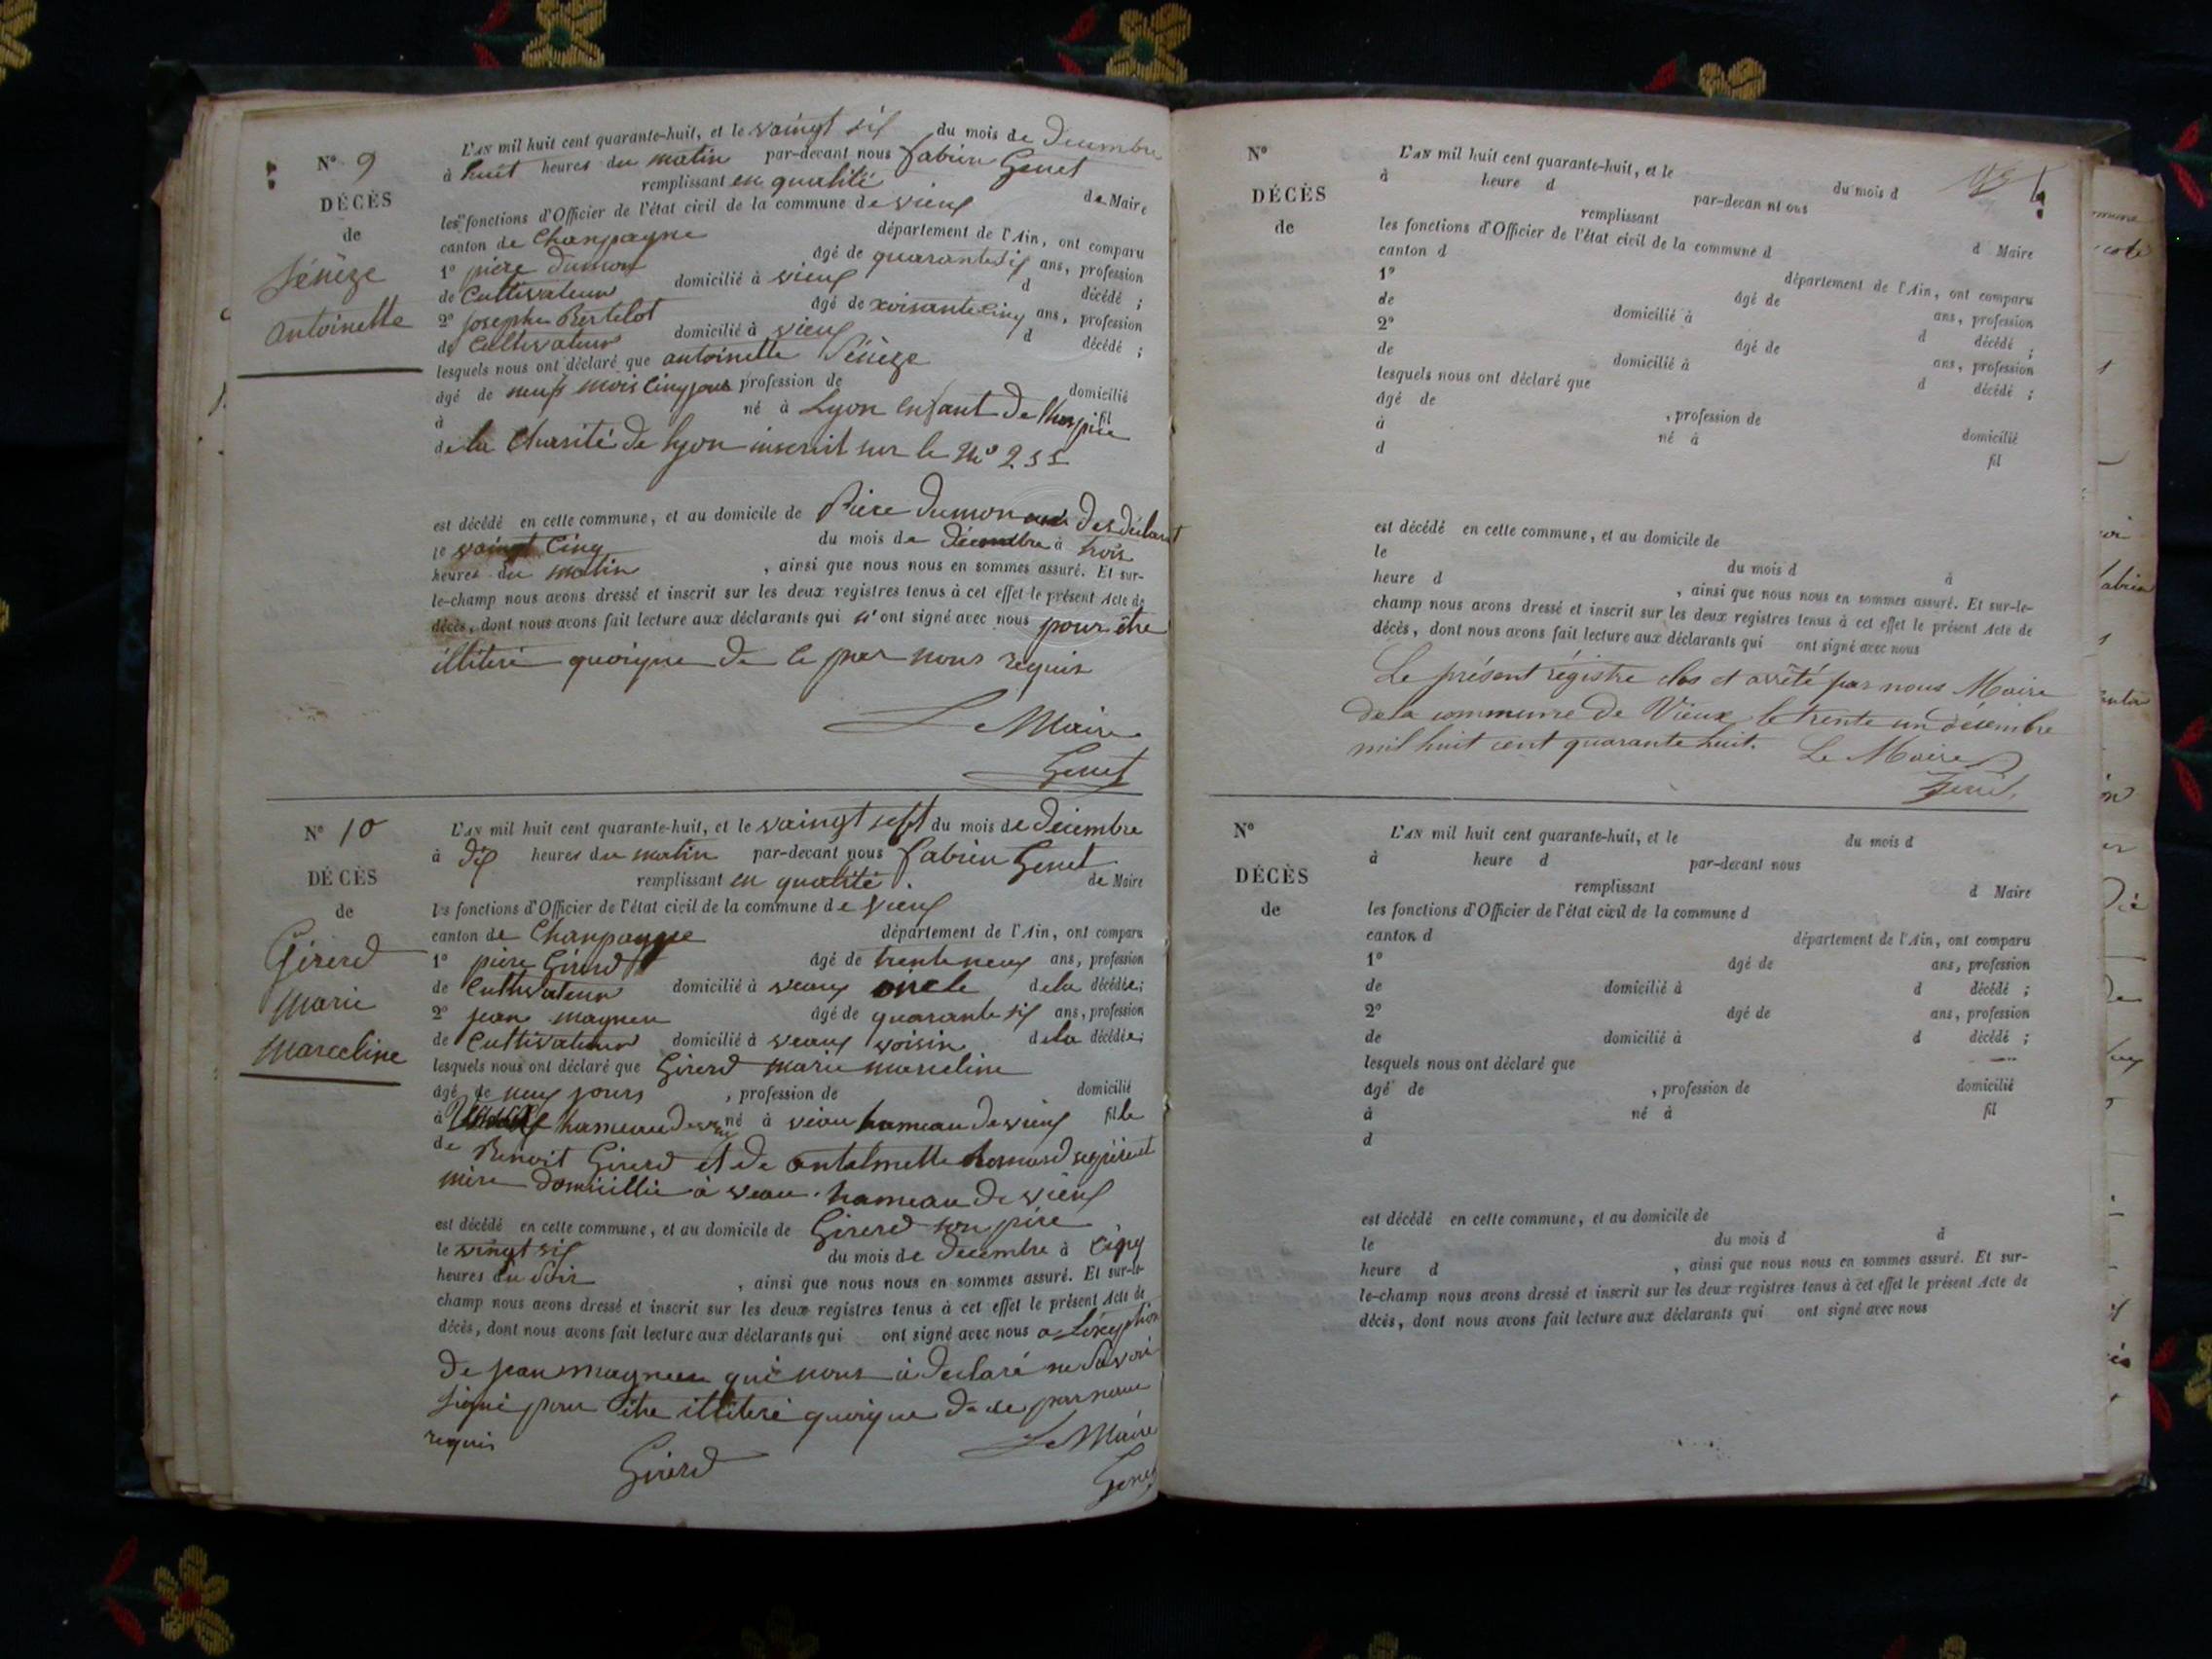 N° 9
DÉCÈS
de
Sénèze
antoinette
L'AN mil huit cent quarante-huit, et le vaingt six du mois de decembre
à huit heures du matin par-devant nous fabien Genet
remplissant en qualité de Maire
les fonctions d'Officier de l'état civil de la commune de vieux
canton de Champagne département de l'Ain, ont comparu
1° piere dumon âgé de quarante six ans, profession
de Cultivateur domicilié à vieux d décédé ;
2° josephe Bertelot âgé de xoisante cinq ans, profession
de Cultivateur domicilié à vieux d décédé ;
lesquels nous ont déclaré que antoinette Sénèze
âgé de neuf mois cinq jours profession de domicilié
à né à Lyon enfant de l'hospice fil
de la Charité de Lyon inscrit sur le N° 255
est décédé en cette commune, et au domicile de Piere dumon des déclarant
le vaingt cinq du mois de décembre à trois
heures du matin , ainsi que nous nous en sommes assuré. Et sur-
le-champ nous avons dressé et inscrit sur les deux registres tenus à cet effet le présent Acte de
décès, dont nous avons fait lecture aux déclarants qui n'ont signé avec nous pour être
illiteré quoique de ce par nous requis
Le Maire
Genet
N° 10
DÉCÈS
de
Girerd
Marie
Marceline
L'AN mil huit cent quarante-huit, et le vaingt sept du mois de decembre
à dix heures du matin par-devant nous fabien Genet
remplissant en qualité de Maire
les fonctions d'Officier de l'état civil de la commune de vieux
canton de Champagne département de l'Ain, ont comparu
1° piere Girerd âgé de trente neuf ans, profession
de Cultivateur domicilié à veaux oncle de la décédée ;
2° jean magnen âgé de quarante six ans, profession
de Cultivateur domicilié à veaux voisin de la décédée ;
lesquels nous ont déclaré que Girerd marie marceline
âgé de neuf jours , profession de domicilié
à hameau de vieux né à veau hameau de vieux fille
de Benoit Girerd et de antelmette Bernard ses père et
mère domicillié à veau hameau de vieux
est décédé en cette commune, et au domicile de Girerd son père
le vingt six du mois de decembre à cinq
heures du soir , ainsi que nous nous en sommes assuré. Et sur-le-
champ nous avons dressé et inscrit sur les deux registres tenus à cet effet le présent Acte de
décès, dont nous avons fait lecture aux déclarants qui ont signé avec nous a l'éxeption
de jean magnen qui nous à déclaré ne savoir
signé pour être illiteré quoique de ce par nous
requis
Le Maire
Girerd
Genet
N°
DÉCÈS
de
L'AN mil huit cent quarante-huit, et le du mois d
à heure d par-devan nt ous
remplissant d Maire
les fonctions d'Officier de l'état civil de la commune d
canton d département de l'Ain, ont comparu
1° âgé de ans, profession
de domicilié à d décédé ;
2° âgé de ans, profession
de domicilié à d décédé ;
lesquels nous ont déclaré que
âgé de , profession de domicilié
à né à fil
d
est décédé en cette commune, et au domicile de
le du mois d à
heure d , ainsi que nous nous en sommes assuré. Et sur-le-
champ nous avons dressé et inscrit sur les deux registres tenus à cet effet le présent Acte de
décès, dont nous avons fait lecture aux déclarants qui ont signé avec nous
Le présent régistre clos et arrêté par nous Maire
de la commune de Vieux, le trente un décembre
mil huit cent quarante huit. Le Maire
Genet
N°
DÉCÈS
de
L'AN mil huit cent quarante-huit, et le du mois d
à heure d par-devant nous
remplissant d Maire
les fonctions d'Officier de l'état civil de la commune d
canton d département de l'Ain, ont comparu
1° âgé de ans, profession
de domicilié à d décédé ;
2° âgé de ans, profession
de domicilié à d décédé ;
lesquels nous ont déclaré que
âgé de , profession de domicilié
à né à fil
d
est décédé en cette commune, et au domicile de
le du mois d d
heure d , ainsi que nous nous en sommes assuré. Et sur-
le-champ nous avons dressé et inscrit sur les deux registres tenus à cet effet le présent Acte de
décès, dont nous avons fait lecture aux déclarants qui ont signé avec nous